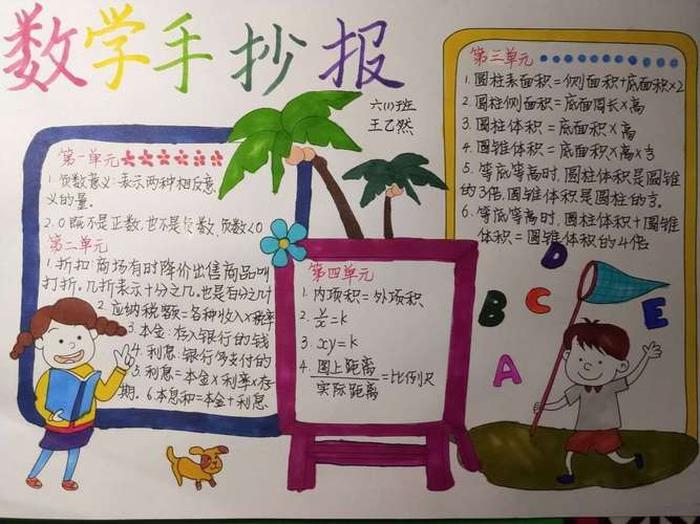 数学手抄报
六(1)班
王乙然
第一单元
1. 负数意义:表示两种相反意
义的量.
2. 0既不是正数,也不是负数,负数<0
第二单元
1. 折扣:商场有时降价出售商品叫
打折。几折表示十分之几,也是百分之几十
2. 应纳税额=各种收入×税率
3. 本金:存入银行的钱
4. 利息:银行多支付的
5 利息=本金×利率×存
期. 6本息和=本金+利息
第四单元
1. 内项积=外项积
2. y/x=k
3. xy=k
4. 图上距离/实际距离=比例尺
第三单元
1. 圆柱表面积=侧面积+底面积×2
2. 圆柱侧面积=底面周长×高
3. 圆柱体积=底面积×高
4. 圆锥体积=底面积×高×⅓
5. 等底等高时,圆柱体积是圆锥
的3倍.圆锥体积是圆柱的⅓.
6. 等底等高时,圆柱体积+圆锥
体积=圆锥体积的4倍
D
B C E
A